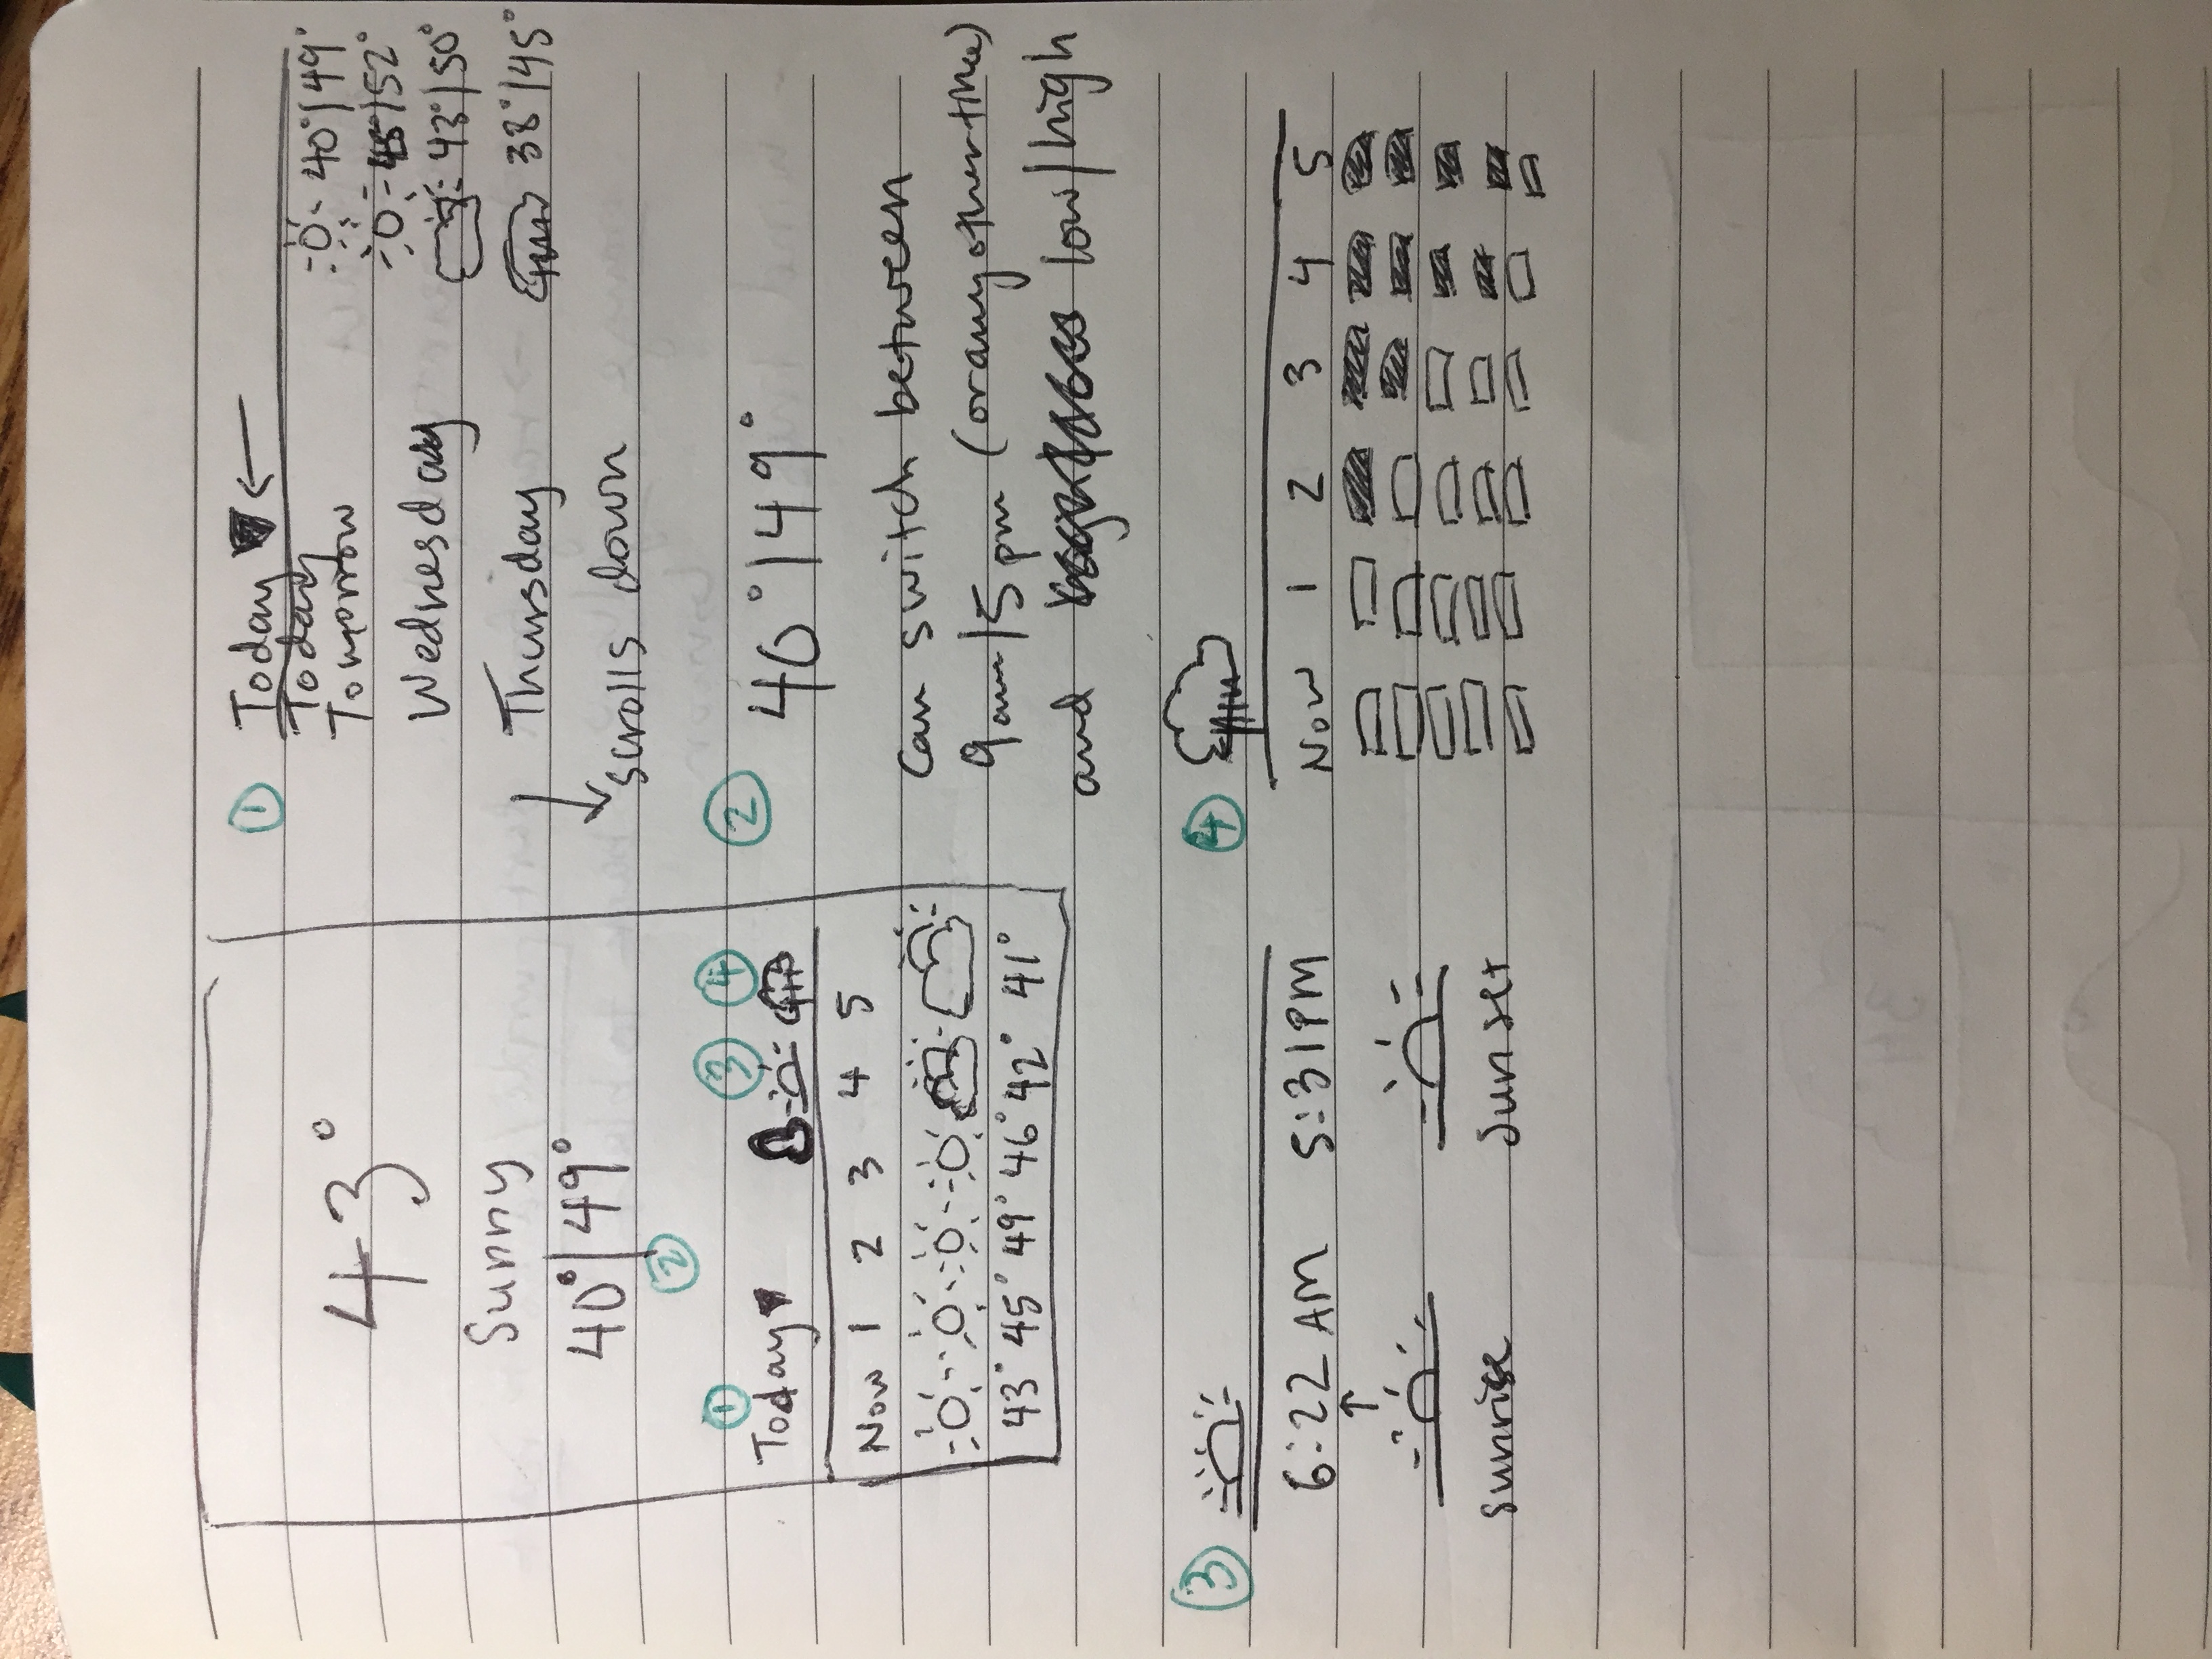 43°
Sunny
40°|49°
②
① ③ ④
Today
Now 1 2 3 4 5
43° 45° 49° 46° 42° 41°
① Today
Today 40°|49°
Tomorrow 45°|52°
Wednesday 43°|50°
Thursday 38°|45°
scrolls down
② 40°|49°
can switch between
9am/5pm (or any other time)
and low/high
③
6:22 AM 5:31PM
sunrise sunset
④
Now 1 2 3 4 5